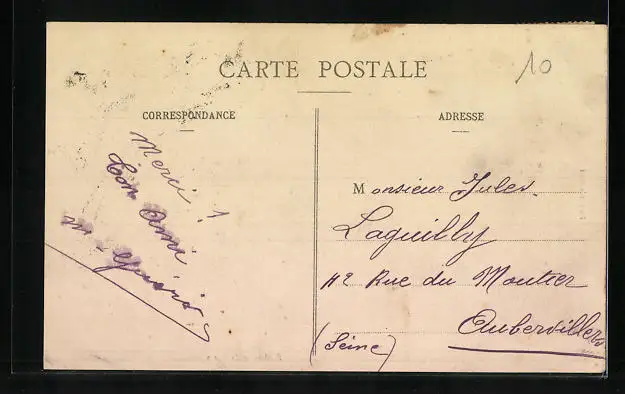 CARTE POSTALE
10
CORRESPONDANCE
ADRESSE
Merci !
Ton Ami
Monsieur Jules
Laguilly
112 Rue du Moutier
Aubervilliers
(Seine)